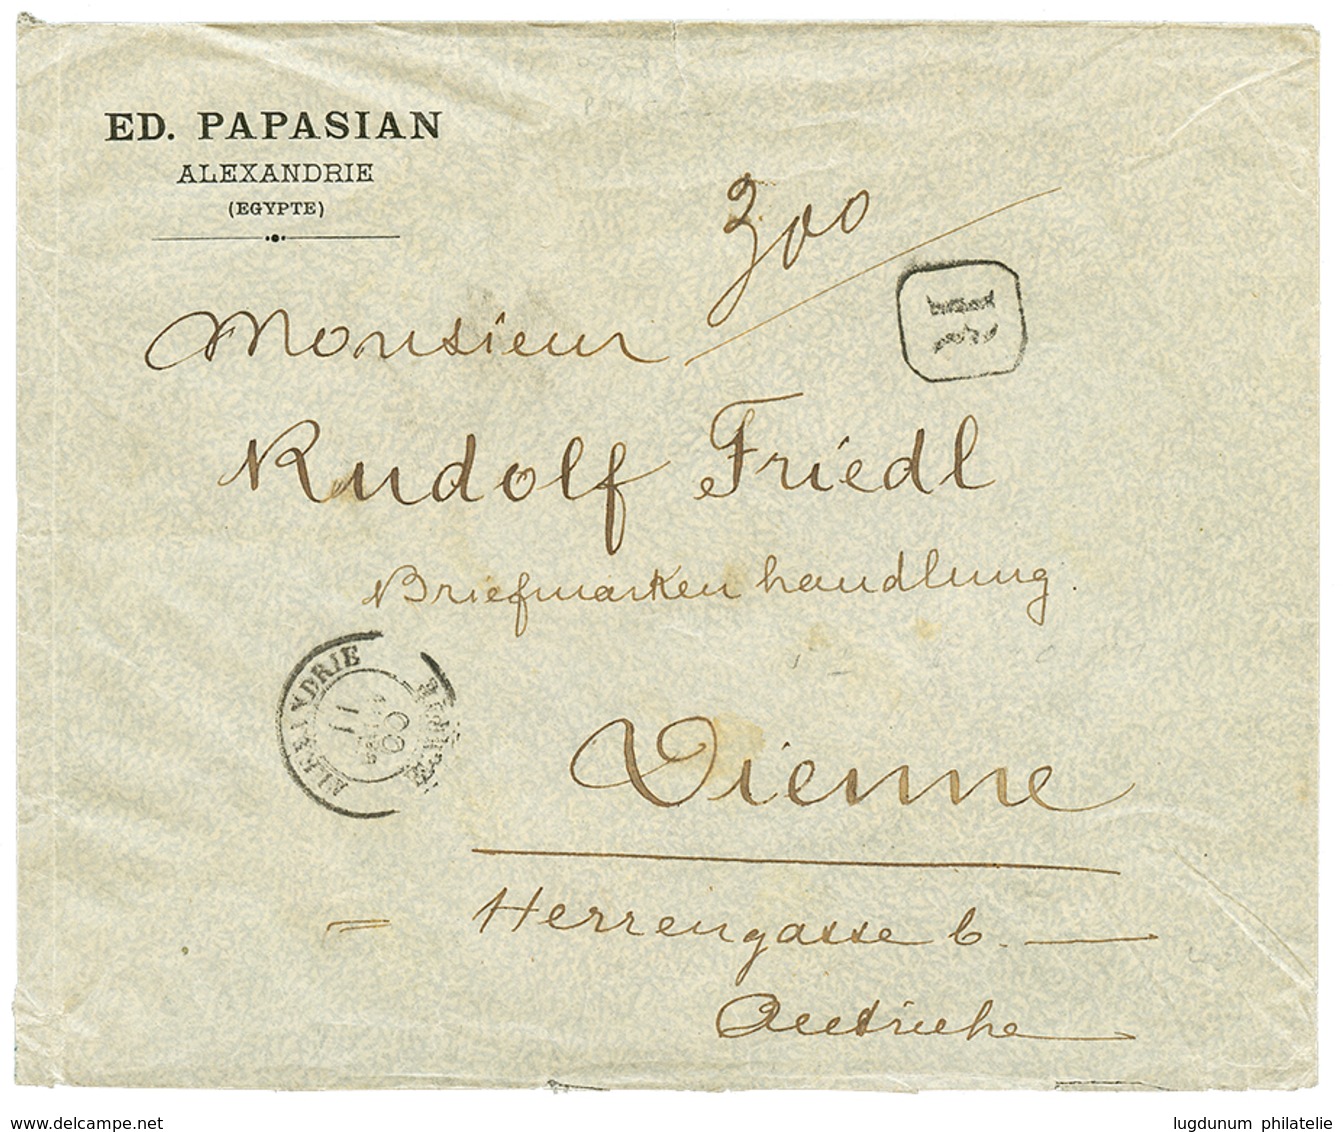 ED. PAPASIAN
ALEXANDRIE
(EGYPTE)
300
R
Monsieur
Rudolf Friedl
Briefmarkenhandlung.
ALEXANDRIE
11
Vienne
Herrengasse 6.
Autriche
www.delcampe.net
lugdunum philatelie